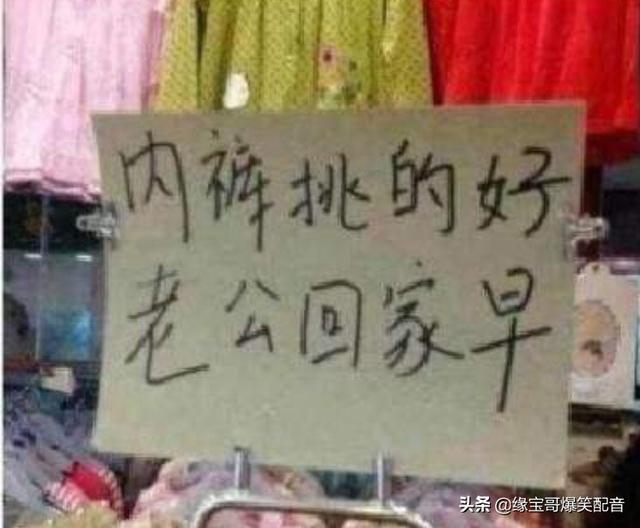 内裤挑的好
老公回家早
头条 @缘宝哥爆笑配音